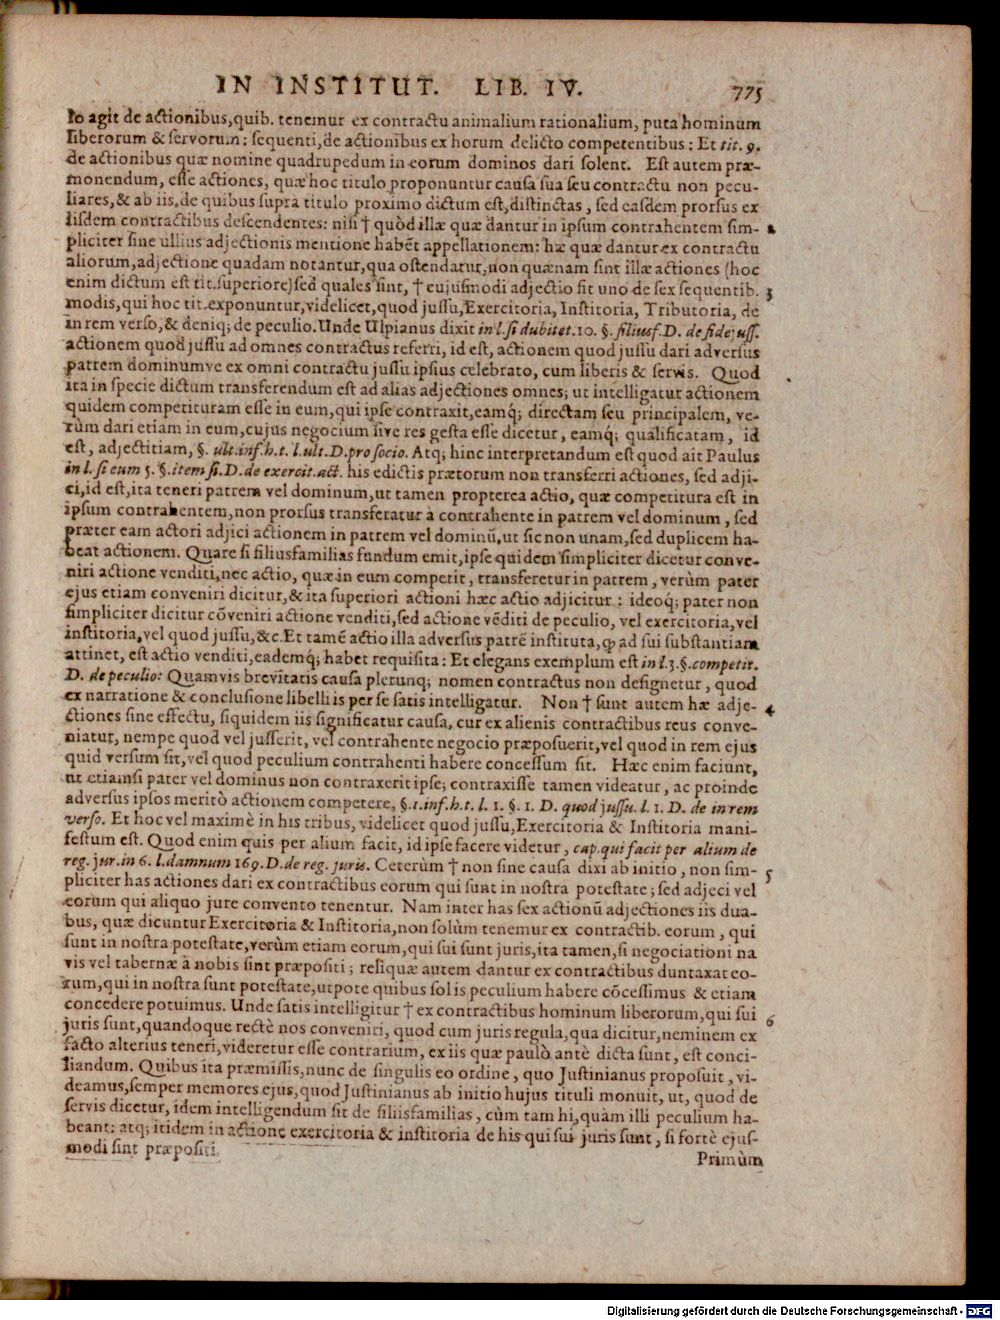 IN INSTITUT. LIB. IV. 775
lo agit de actionibus,quib. tenemur ex contractu animalium rationalium, puta hominum
liberorum & servorum: sequenti,de actionibus ex horum delicto competentibus: Et tit. 9.
de actionibus quæ nomine quadrupedum in eorum dominos dari solent. Est autem præ-
monendum, esse actiones, quæ hoc titulo proponuntur causa sua seu contractu non pecu-
liares,& ab iis,de quibus supra titulo proximo dictum est,distinctas, sed easdem prorsus ex
iisdem contractibus descendentes: nisi † quòd illæ quæ dantur in ipsum contrahentem sim- 2
pliciter sine ullius adjectionis mentione habēt appellationem: hæ quæ dantur ex contractu
aliorum,adjectione quadam notantur,qua ostendatur,non quænam sint illæ actiones (hoc
enim dictum est tit.superiore)sed quales sint, † cujusmodi adjectio fit uno de sex sequentib. 3
modis,qui hoc tit.exponuntur,videlicet,quod jussu,Exercitoria, Institoria, Tributoria, de
in rem verso,& deniq; de peculio.Unde Ulpianus dixit in l.si dubitet.10. §. filiusf.D. de fidejuss.
actionem quod jussu ad omnes contractus referri, id est, actionem quod jussu dari adversus
patrem dominumve ex omni contractu jussu ipsius celebrato, cum liberis & servis. Quod
ita in specie dictum transferendum est ad alias adjectiones omnes; ut intelligatur actionem
quidem competituram esse in eum,qui ipse contraxit,eamq́; directam seu principalem, ve-
rùm dari etiam in eum,cujus negocium sive res gesta esse dicetur, eamq́; qualificatam, id
est, adjectitiam, §. ult.inf.h.t. l.ult.D.pro socio. Atq; hinc interpretandum est quod ait Paulus
in l.si eum 5. §.item si.D.de exercit.act. his edictis prætorum non transferri actiones, sed adji-
ci,id est,ita teneri patrem vel dominum,ut tamen propterea actio, quæ competitura est in
ipsum contrahentem,non prorsus transferatur à contrahente in patrem vel dominum, sed
præter eam actori adjici actionem in patrem vel dominū,ut sic non unam,sed duplicem ha-
beat actionem. Quare si filiusfamilias fundum emit,ipse quidem simpliciter dicetur conve-
niri actione venditi,nec actio, quæ in eum competit, transferetur in patrem, verùm pater
ejus etiam conveniri dicitur,& ita superiori actioni hæc actio adjicitur: ideoq́; pater non
simpliciter dicitur cōveniri actione venditi,sed actione vēditi de peculio, vel exercitoria,vel
institoria,vel quod jussu,&c.Et tamē actio illa adversus patrē instituta,ꝙ ad sui substantiam
attinet, est actio venditi,eademq́; habet requisita: Et elegans exemplum est in l.3.§.competit.
D. de peculio: Quamvis brevitatis causa plerunq; nomen contractus non designetur, quod
ex narratione & conclusione libelli is per se satis intelligatur. Non † sunt autem hæ adje- 4
ctiones sine effectu, siquidem iis significatur causa, cur ex alienis contractibus reus conve-
niatur, nempe quod vel jusserit, vel contrahente negocio præposuerit,vel quod in rem ejus
quid versum sit,vel quod peculium contrahenti habere concessum sit. Hæc enim faciunt,
ut etiamsi pater vel dominus non contraxerit ipse; contraxisse tamen videatur, ac proinde
adversus ipsos meritò actionem competere, §.1.inf.h.t. l. 1. §. 1. D. quod jussu. l. 1. D. de in rem
verso. Et hoc vel maximè in his tribus, videlicet quod jussu,Exercitoria & Institoria mani-
festum est. Quod enim quis per alium facit, id ipse facere videtur, cap.qui facit per alium de
reg. jur.in 6. l.damnum 169.D.de reg. juris. Ceterùm † non sine causa dixi ab initio, non sim- 5
pliciter has actiones dari ex contractibus eorum qui sunt in nostra potestate; sed adjeci vel
eorum qui aliquo jure convento tenentur. Nam inter has sex actionū adjectiones iis dua-
bus, quæ dicuntur Exercitoria & Institoria,non solùm tenemur ex contractib. eorum, qui
sunt in nostra potestate,verùm etiam eorum,qui sui sunt juris,ita tamen,si negociationi na
vis vel tabernæ à nobis sint præpositi; reliquæ autem dantur ex contractibus duntaxat eo-
rum,qui in nostra sunt potestate,utpote quibus solis peculium habere cōcessimus & etiam
concedere potuimus. Unde satis intelligitur † ex contractibus hominum liberorum,qui sui 6
juris sunt,quandoque rectè nos conveniri, quod cum juris regula,qua dicitur,neminem ex
facto alterius teneri,videretur esse contrarium, ex iis quæ paulò antè dicta sunt, est conci-
liandum. Quibus ita præmissis,nunc de singulis eo ordine, quo Justinianus proposuit, vi-
deamus,semper memores ejus,quod Justinianus ab initio hujus tituli monuit, ut, quod de
servis dicetur, idem intelligendum sit de filiisfamilias, cùm tam hi,quàm illi peculium ha-
beant: atq; itidem in actione exercitoria & institoria de his qui sui juris sunt, si fortè ejus-
modi sint præpositi.
Primùm
Digitalisierung gefördert durch die Deutsche Forschungsgemeinschaft - DFG